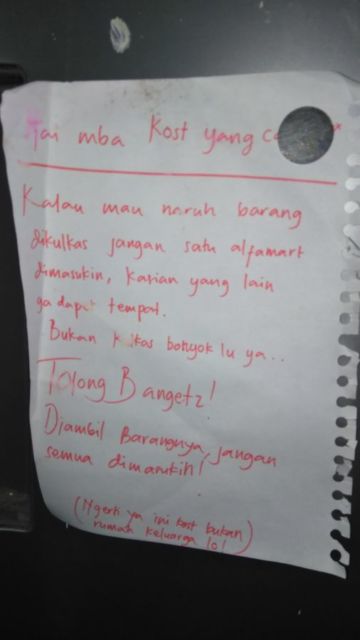 Tai mba Kost yang
Kalau mau naruh barang
dikulkas jangan satu alfamart
dimasukin, Karian yang lain
ga dapat tempat.
Bukan kulkas bonyok lu ya..
Tolong Bangetz!
Diambil Barangnya, jangan
semua dimasukin!
(Ngerti ya ini kost bukan
rumah keluarga lo!)